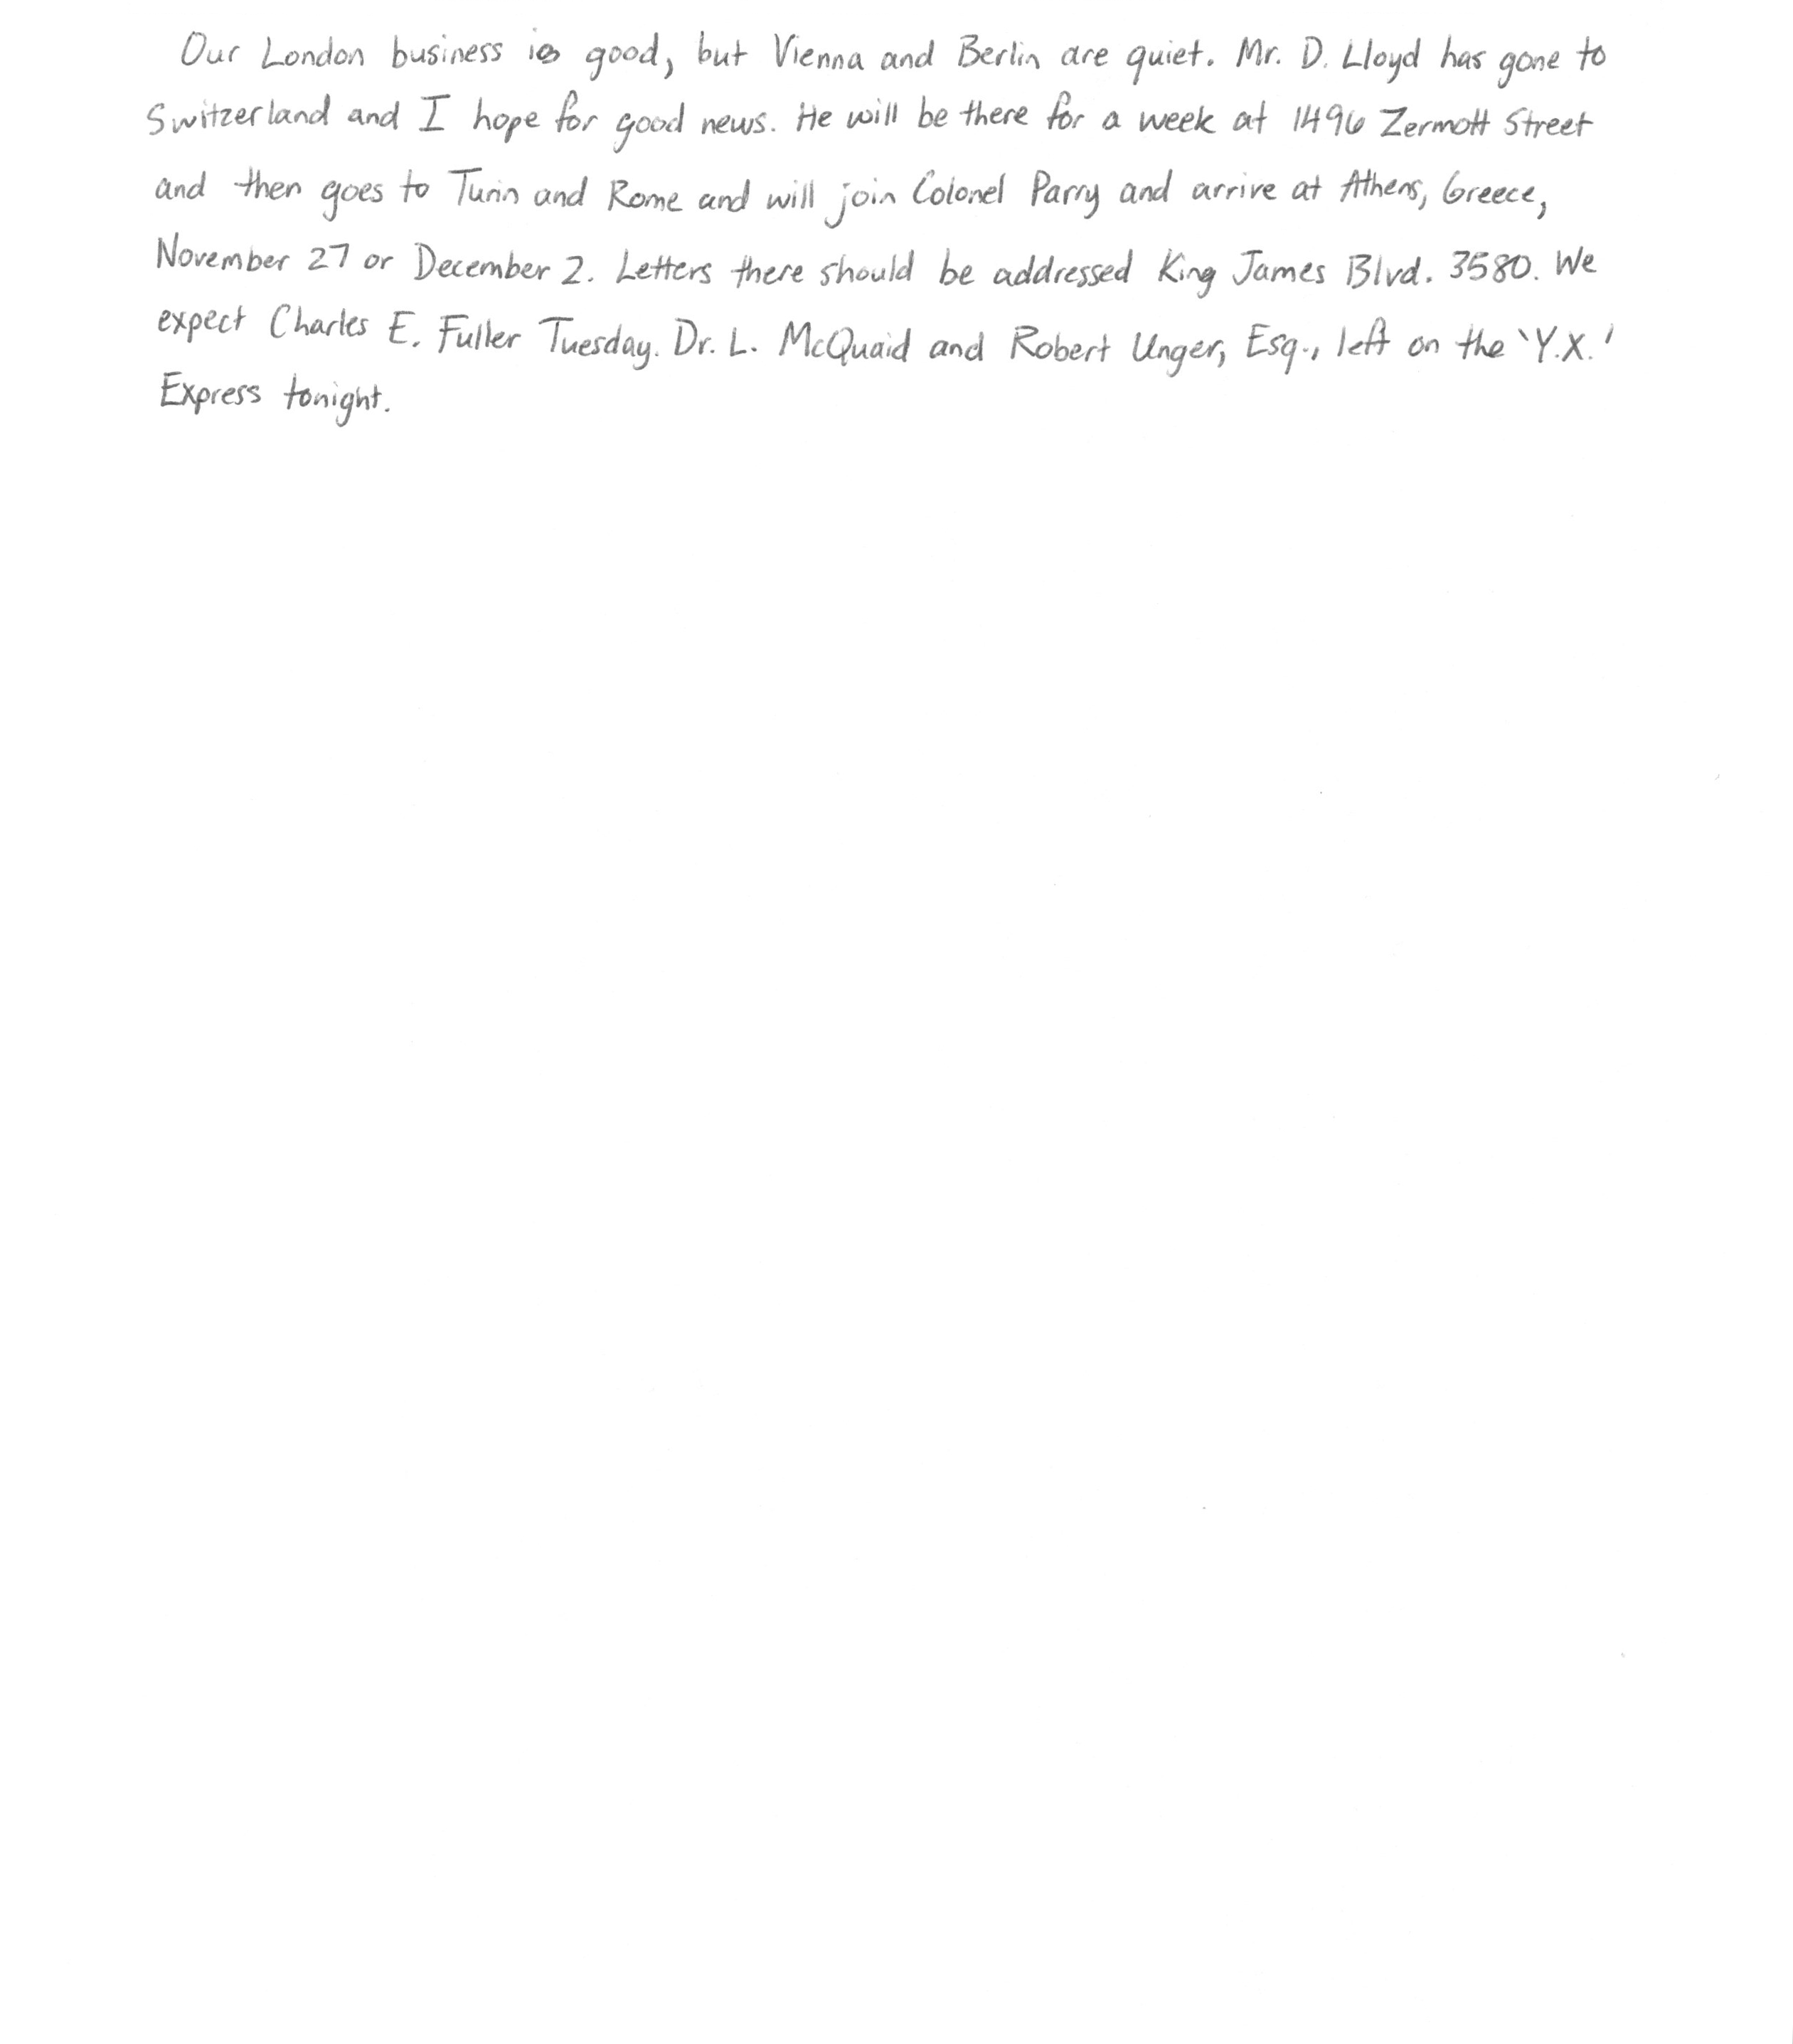 Our London business is good, but Vienna and Berlin are quiet. Mr. D. Lloyd has gone to
Switzerland and I hope for good news. He will be there for a week at 1496 Zermott Street
and then goes to Turin and Rome and will join Colonel Parry and arrive at Athens, Greece,
November 27 or December 2. Letters there should be addressed King James Blvd. 3580. We
expect Charles E. Fuller Tuesday. Dr. L. McQuaid and Robert Unger, Esq., left on the 'Y.X.'
Express tonight.